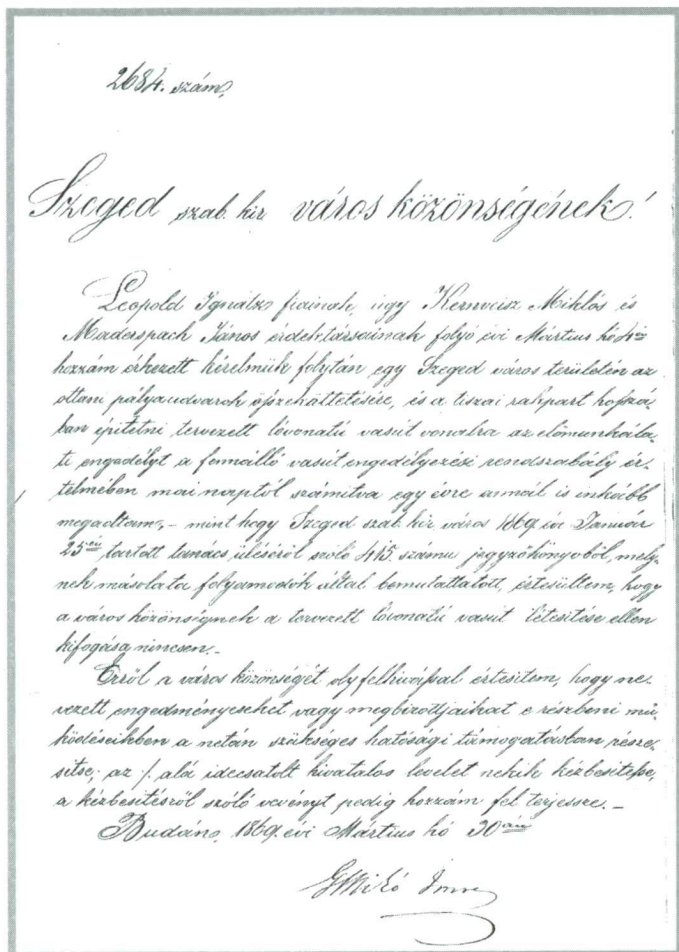 2684. szám,
Szeged szab. kir város közönségének!
Leopold Ignátz fiainak, úgy Miklós és
Maderspach János érdektársainak folyó évi Mártius hó
hozzám érkezett kérelmük folytán egy Szeged város területén az
ottani pályaudvarok összeköttetésére, és a tiszai rakpart hosszá-
ban építetni tervezett lóvonatú vasút vonalra az előmunkála-
ti engedélyt a fennálló vasút engedélyezési rendszabály ér-
telmében mai naptól számítva egy évre annál is inkább
megadtam, – mint hogy Szeged szab. kir város 1869 év Január
25én tartott tanács üléséről szóló 415. számu jegyzőkönyvből, mely-
nek másolata folyamodók által bemutattatott, értesültem, hogy
a város közönségnek a tervezett lóvonatú vasút létesítése ellen
kifogása nincsen. –
Erről a város közönségét oly felhívással értesítem, hogy ne-
vezett engedményeseket vagy megbízottjaikat e részbeni mű-
ködéseikben a netán szükséges hatósági támogatásban része-
sítse; az ·/. alá idecsatolt hivatalos levelet nekik kézbesítesse,
a kézbesítésről szóló vevényt pedig hozzám fel terjessze. –
Budán, 1869. évi Mártius hó 30án
GMikó Imre